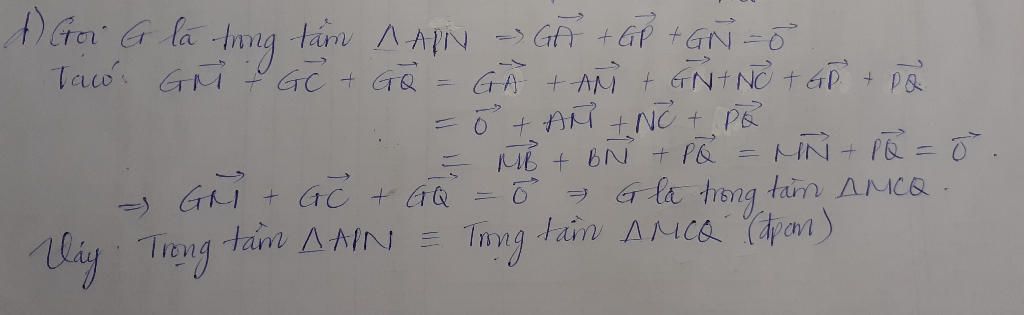 d) Gọi G là trọng tâm ΔAPN ⇒ GA⃗ + GP⃗ + GN⃗ = 0⃗
Ta có: GM⃗ + GC⃗ + GQ⃗ = GA⃗ + AM⃗ + GN⃗ + NC⃗ + GP⃗ + PQ⃗
= 0⃗ + AM⃗ + NC⃗ + PQ⃗
= MB⃗ + BN⃗ + PQ⃗ = MN⃗ + PQ⃗ = 0⃗.
⇒ GM⃗ + GC⃗ + GQ⃗ = 0⃗ ⇒ G là trọng tâm ΔMCQ.
Vậy: Trọng tâm ΔAPN ≡ Trọng tâm ΔMCQ (đpcm)